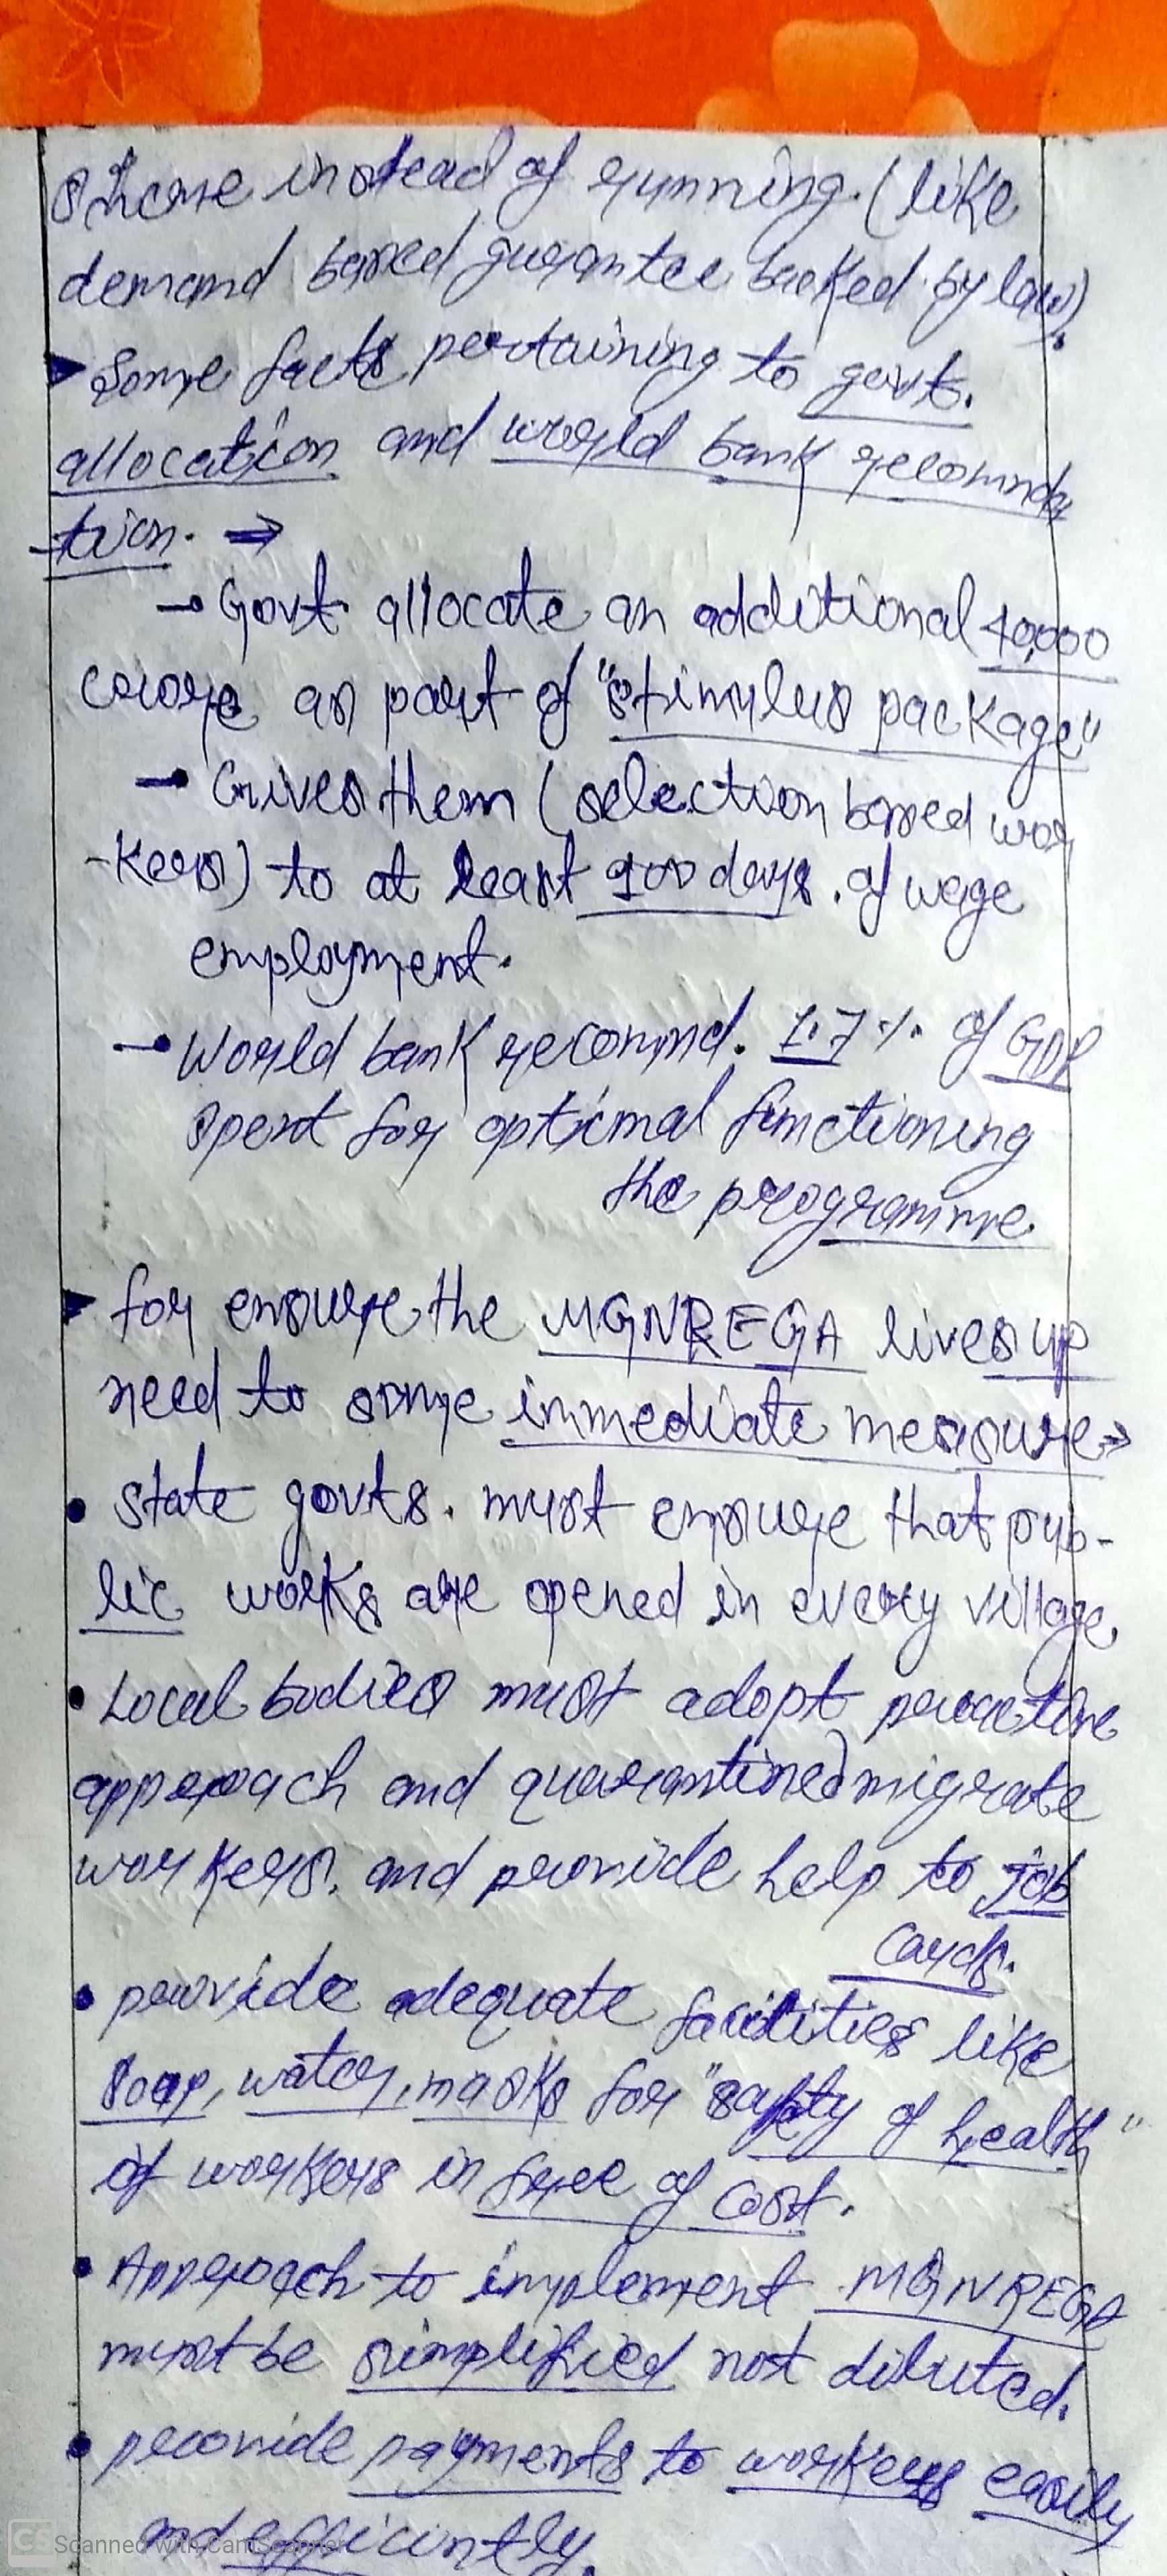 instead of running. (like
demand based gurantee backed by law).
Some facts pertaining to govt.
allocation and world bank recommda
-tion. →
→ Govt allocate an additional 40,000
crore as part of "stimulus package"
→ Gives them (selection based wor
-kers) to at least 100 days. of wage
employment.
→ World bank recommd. 1.7 % of GDP
spent for optimal functioning
the programme.
for ensure the MGNREGA lives up
need to some immediate measure→
• state govts. must ensure that pub-
lic works are opened in every village.
• Local bodies must adopt proactive
approach and quarantined migrate
workers. and provide help to job
Cards.
• provide adequate facilities like
soap, water, masks for "safety of health"
of workers in free of cost.
• Approach to implement MGNREGA
must be simplified not diluted.
• provide payments to workers easily
and efficintly.
CS Scanned with CamScanner